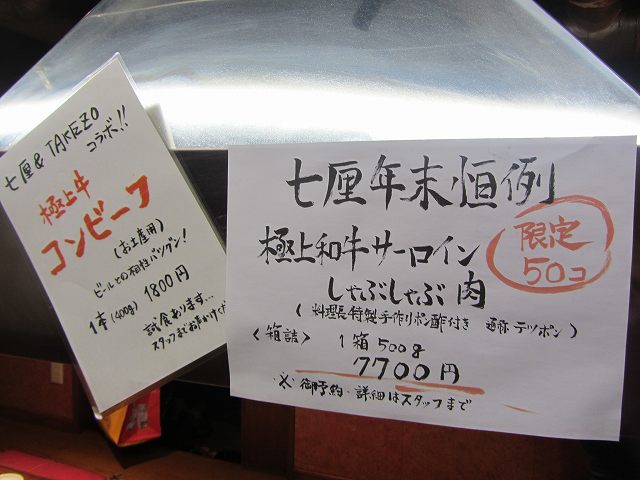 七厘&TAKEZO
コラボ!!
極上牛
コンビーフ
(お土産用)
ビールとの相性バツグン!
1本(400g) 1800円
試食あります…
スタッフまでお声かけくだ
七厘年末恒例
極上和牛サーロイン
しゃぶしゃぶ肉
限定
50コ
(料理長特製手作りポン酢付き 通称テツポン)
<箱詰> 1箱500g
7700円
※御予約・詳細はスタッフまで